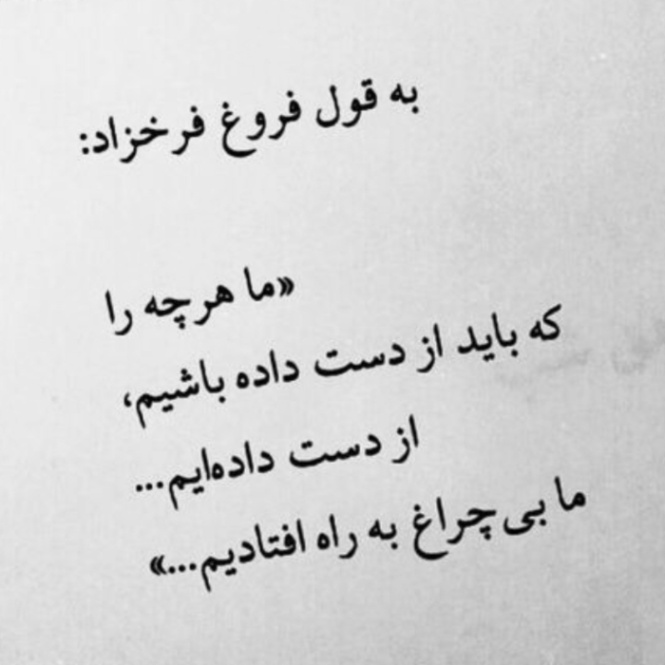 به قول فروغ فرخزاد:
«ما هرچه را
که باید از دست داده باشیم،
از دست داده‌ایم...
ما بی‌چراغ به راه افتادیم...»